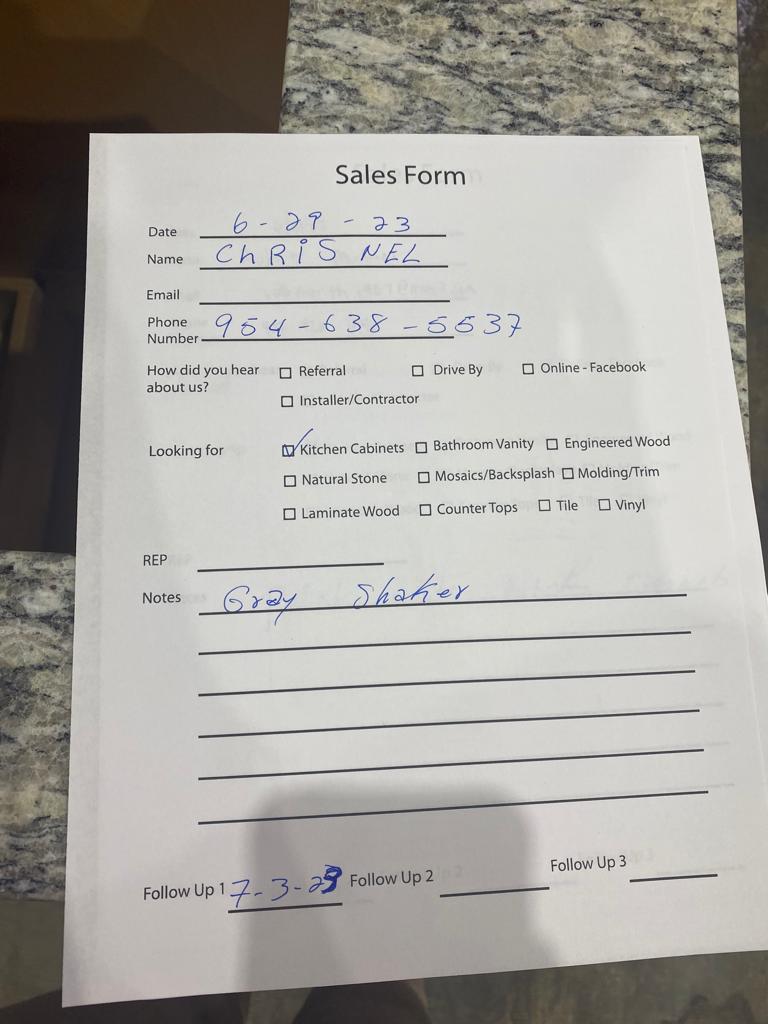 Sales Form
Date 6-29-23
Name ChRiS NEL
Email
Phone
Number 954-638-5537
How did you hear ☐ Referral ☐ Drive By ☐ Online - Facebook
about us?
☐ Installer/Contractor
Looking for ☑ Kitchen Cabinets ☐ Bathroom Vanity ☐ Engineered Wood
☐ Natural Stone ☐ Mosaics/Backsplash ☐ Molding/Trim
☐ Laminate Wood ☐ Counter Tops ☐ Tile ☐ Vinyl
REP
Notes Gray Shaker
Follow Up 1 7-3-23 Follow Up 2 Follow Up 3